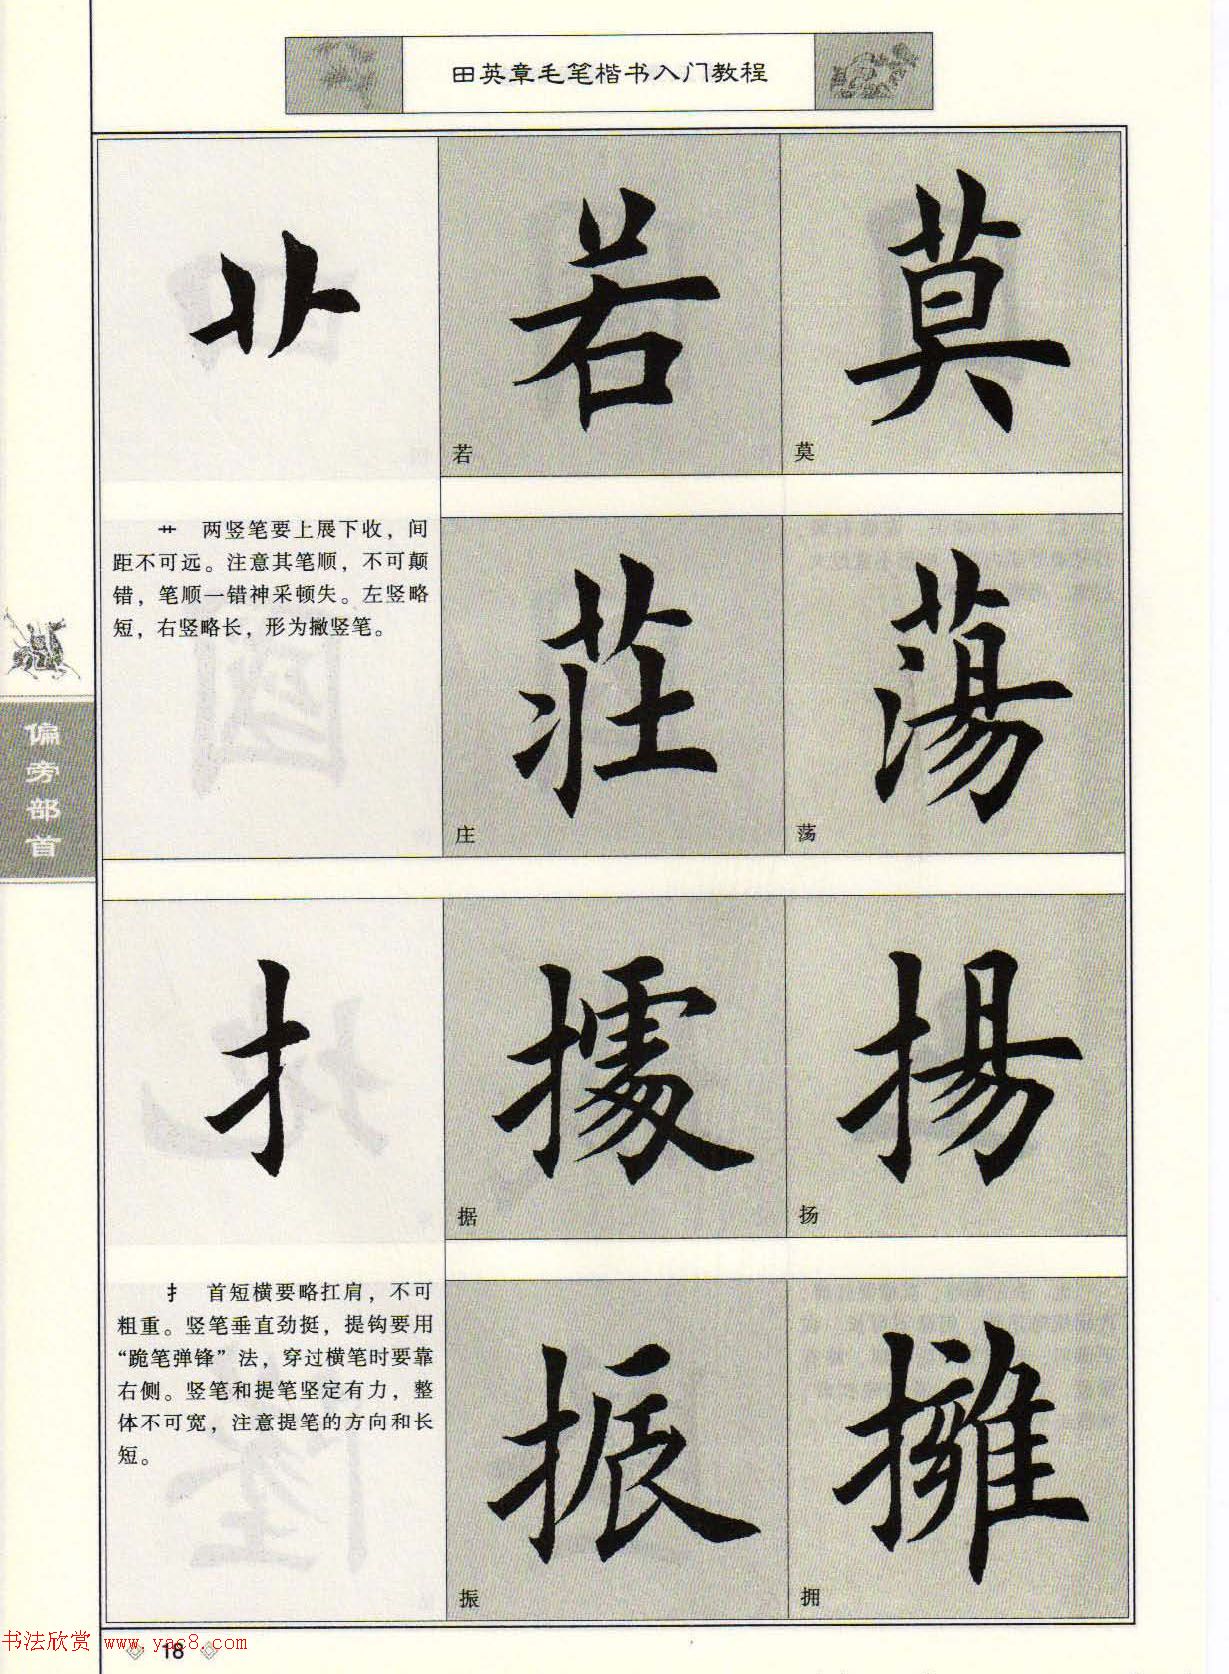 田英章毛笔楷书入门教程
若
莫
若
莫
艹 两竖笔要上展下收，间
距不可远。注意其笔顺，不可颠
错，笔顺一错神采顿失。左竖略
短，右竖略长，形为撇竖笔。
莊
蕩
庄
荡
偏旁部首
扌
據
揚
据
扬
扌 首短横要略扛肩，不可
粗重。竖笔垂直劲挺，提钩要用
“跪笔弹锋”法，穿过横笔时要靠
右侧。竖笔和提笔坚定有力，整
体不可宽，注意提笔的方向和长
短。
振
擁
振
拥
书法欣赏 www.yac8.com
18